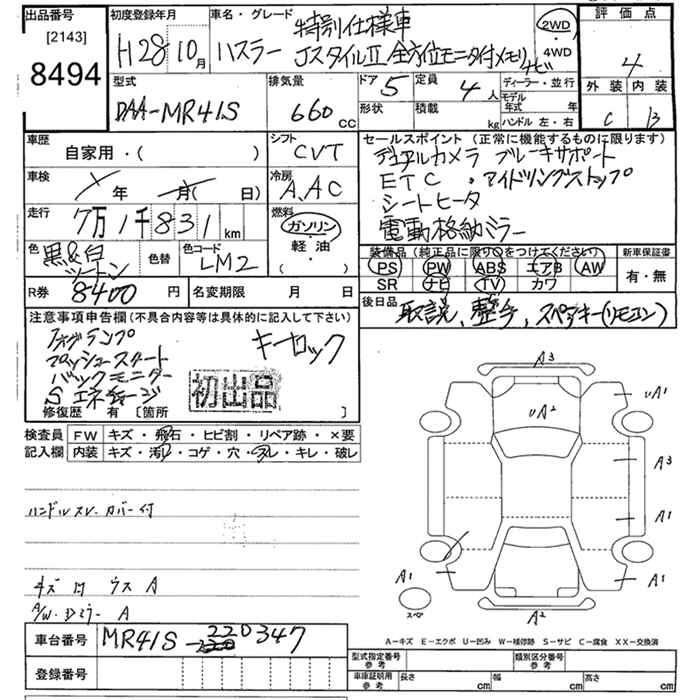 出品番号
[2143]
8494
初度登録年月
H28 10月
車名・グレード
特別仕様車
ハスラー JスタイルⅡ 全方位モニタ付メモリナビ
2WD
・
4WD
評価点
4
外装 内装
C B
型式
DAA-MR41S
排気量
660 CC
ドア 5
定員 4人
形状
積載 kg
ディーラー・並行
モデル年式 年
ハンドル 左・右
車歴
自家用・( )
シフト
CVT
車検
年 月( 日)
冷房
A.AC
走行
7万1千831km
燃料
ガソリン
・
軽油
( )
色
黒&白
ツートン
色替
色コード
LM2
R券
8400円
名変期限 月 日
セールスポイント(正常に機能するものに限ります)
デュアルカメラ ブレーキサポート
ETC ・アイドリングストップ
シートヒータ
電動格納ミラー
装備品(純正品に限り○をつけてください)
新車保証書
PS PW ABS エアB AW
SR ナビ TV カワ
有・無
後日品
取説、整手、スペアキー(リモコン)
注意事項申告欄(不具合内容等は具体的に記入して下さい)
フォグランプ
プッシュスタート
バックモニター
Sエネチャージ
キーロック
初出品
修復歴 有[箇所 ]
検査員
記入欄
FW キズ・飛石・ヒビ割・リペア跡・×要
内装 キズ・汚れ・コゲ・穴・スレ・キレ・破レ
ハンドルスレ・カバー付
キズ 凹 ウス A
A/W・Dミラー A
A3
UA1
UA2
A3
A1
A1
A1
A2
スペア
A-キズ E-エクボ U-凹み W-補修跡 S-サビ C-腐食 XX-交換済
車台番号
MR41S-220347
登録番号
型式指定番号
参考
類別区分番号
参考
車庫証明用
参考
長さ cm
幅 cm
高さ cm